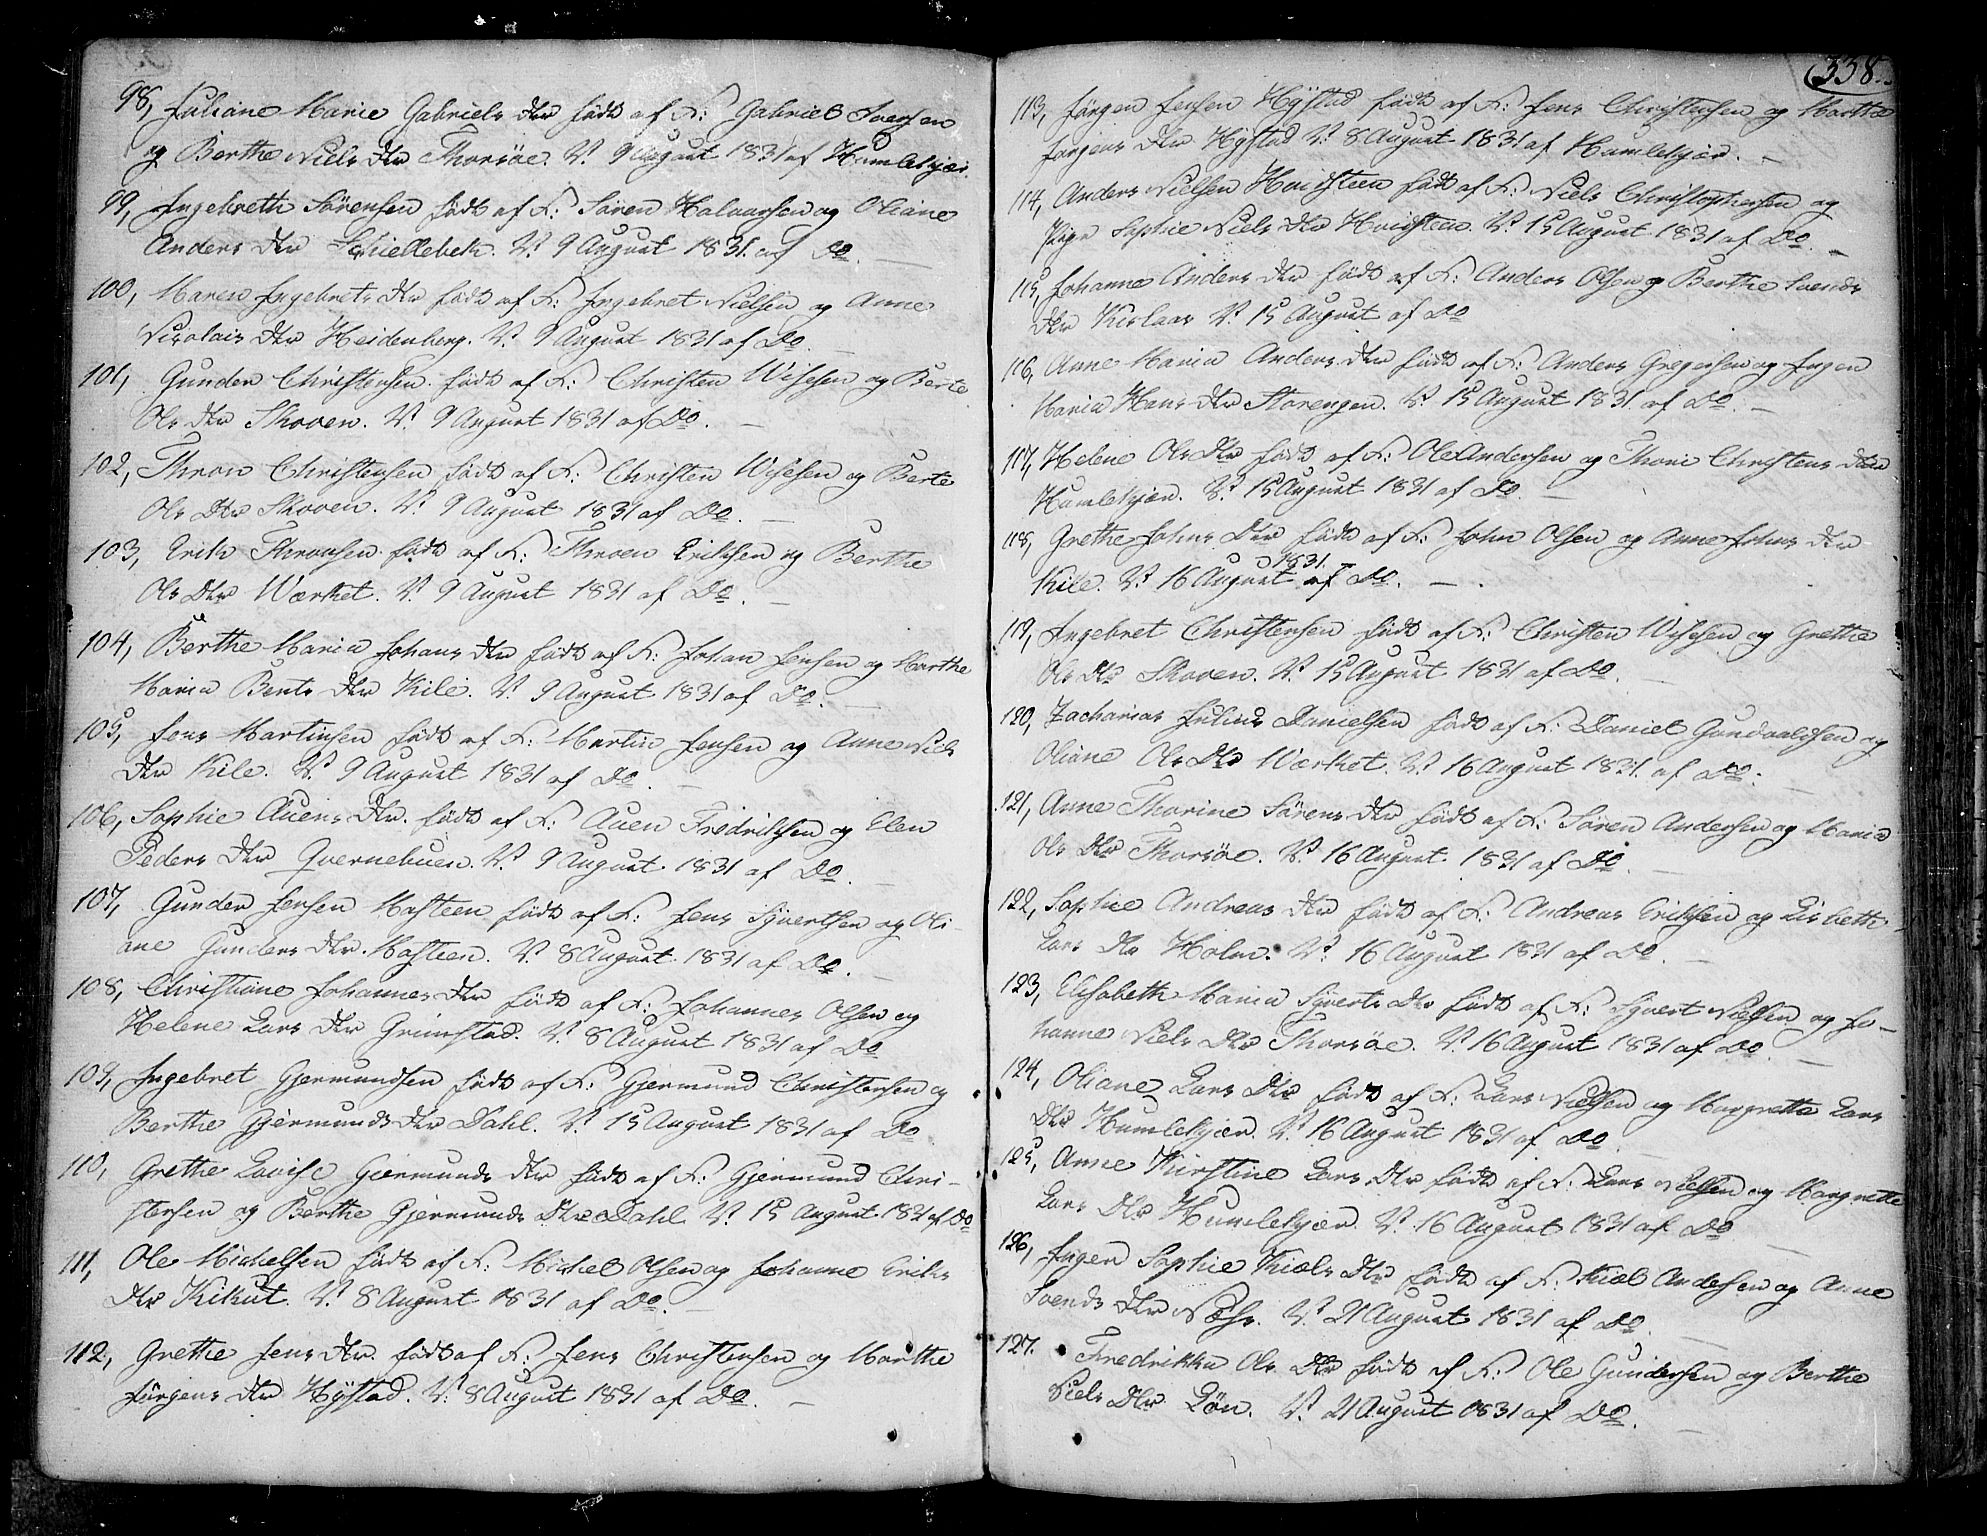 98, Juliane Marie Gabriels Dtr født af F: Gabriel Iversen
og Berthe Niels Dtr Thorsøe. V: 9 August 1831 af Humlekjær.
99, Ingebreth Sörensen født af F: Sören Halvorsen og Oliane
Anders Dtr Skiellebek. V: 9 August 1831 af Do. —
100, Maren Ingebrets Dtr født af F: Ingebret Nielsen og Anne
Nicolais Dtr Heidenberg. V: 9 August 1831 af Do. —
101, Gunder Christensen født af F: Christen Wisesen og Berte
Ols Dtr Skoven. V: 9 August 1831 af Do. —
102, Thron Christensen født af F: Christen Wisesen og Berte
Ols Dtr Skoven. V: 9 August 1831 af Do. —
103, Erik Thronsen født af F: Throen Eriksen og Berthe
Ols Dtr Wærket. V: 9 August 1831 af Do. —
104, Berthe Maria Johans Dtr født af F: Johan Jensen og Marthe
Maria Bents Dtr Kile. V: 9 August 1831 af Do. —
105, Jens Martinsen født af F: Martin Jensen og Anne Niels
Dtr Kile. V: 9 August 1831 af Do. —
106, Sophie Auens Dtr. født af F: Auen Fredriksen og Elen
Peders Dtr Qvernebuen. V: 9 August 1831 af Do. —
107, Gunder Jensen Hasteen født af F: Jens Syvertsen og Oli-
ane Gunders Dtr. Hasteen. V: 8 August 1831 af Do. —
108, Christiane Johannes Dtr født af F: Johannes Olsen og
Helene Lars Dtr Grimstad. V: 8 August 1831 af Do
109, Ingebret Gjermundsen født af F: Gjermund Christensen og
Berthe Gjermunds Dtr Dahl. V: 15 August 1831 af Do
110, Grethe Lovise Giermunds Dtr født af F: Gjermund Chri-
stensen og Berthe Gjermunds Dtr Dahl V: 15 August 1831 af Do
111, Ole Michelsen født af F: Michel Olsen og Johanne Eriks
Dtr Kikut. V: 8 August 1831 af Do. —
112, Grethe Jens Dtr. født af F: Jens Christensen og Marthe
Jürgens Dtr Hÿstad. V: 8 August 1831 af Do. —
338.
113, Jörgen Jensen Hÿstad født af F: Jens Christensen og Marthe
Jorgens Dtr Hÿstad V: 8 August 1831 af Humlekjær. —
114, Anders Nielsen Hvidsteen født af F: Niels Christophersen og
Pige Sophie Niels Dtr Hvidsteen. V: 15 August 1831 af Do. —
115, Johanne Anders Dtr født af F: Anders Olsen og Berthe Svends
Dtr Kislaas V: 15 August af Do
116, Anne Maria Anders Dtr født af F: Anders Gregersen og Ingen
Maria Hans Dtr Storengen. V: 15 August 1831 af Do. —
117, Helene Ols Dtr født af F: Ole Andersen og Thori Christens Dtr
Humlekjær. V: 15 August 1831 af Do. —
118, Grethe Johns Dtr født af F: John Olsen og Anne Johns Dtr
Kile. V: 16 August 1831 af Do. —
119, Ingebret Christensen født af F: Christen Wisesen og Grethe
Ols Dtr Skoven. V: 15 August 1831 af Do. —
120, Zacharias Julius Danielsen født af F: Daniel Gundvaldsen og
Oliane Ols Dtr Wærket. V: 16 August 1831 af Do. —
121, Anne Thorine Sörens Dtr født af F: Sören Andersen og Maria
Ols Dtr Thorsöe. V: 16 August 1831 af Do. —
122, Sophie Andreas Dtr født af F: Andreas Eriksen og Lisbeth
Lars Dtr Holm. V: 16 August 1831 af Do. —
123, Elisabeth Maria Syverts Dtr født af F: Syvert Nielsen og Jo-
hanne Niels Dtr Thorsöe. V: 16 August 1831 af Do. —
124, Oliane Lars Dtr født af F: Lars Nielsen og Margrethe Lars
Dtr Humlekjær. V: 16 August 1831 af Do
125, Anne Kirstine Lars Dtr født af F: Lars Nielsen og Margrethe
Lars Dtr Humlekjær. V: 16 August 1831 af Do —
126, Ingen Sophie Kiøls Dtr født af F: Kiøl Andersen og Anne
Svends Dtr Næss. V: 21 August 1831 af Do. —
127. Fredrikka Ols Dtr født af F: Ole Gundersen og Berthe
Niels Dtr Lön. V: 21 August 1831 af Do.